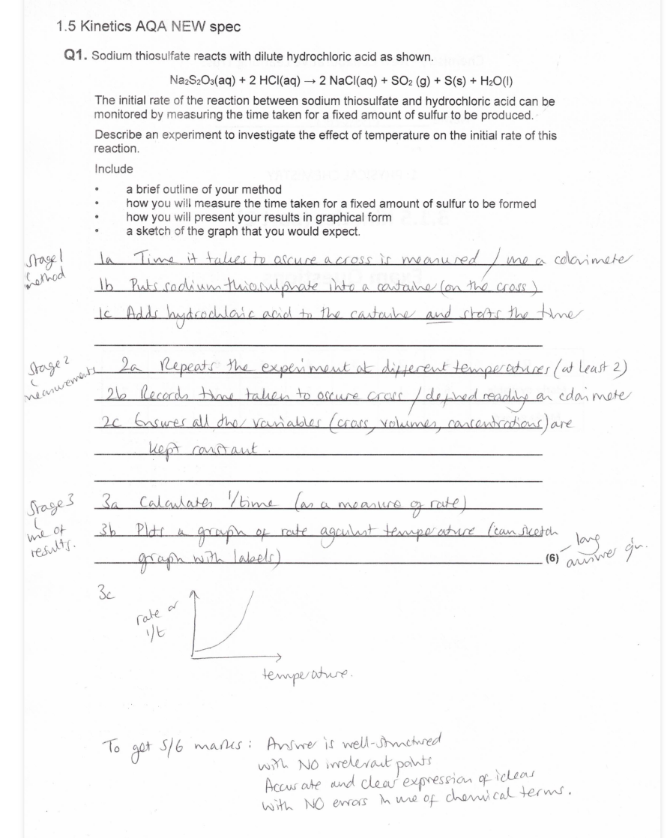 1.5 Kinetics AQA NEW spec
Q1. Sodium thiosulfate reacts with dilute hydrochloric acid as shown.
Na₂S₂O₃(aq) + 2 HCl(aq) → 2 NaCl(aq) + SO₂ (g) + S(s) + H₂O(l)
The initial rate of the reaction between sodium thiosulfate and hydrochloric acid can be
monitored by measuring the time taken for a fixed amount of sulfur to be produced.
Describe an experiment to investigate the effect of temperature on the initial rate of this
reaction.
Include
• a brief outline of your method
• how you will measure the time taken for a fixed amount of sulfur to be formed
• how you will present your results in graphical form
• a sketch of the graph that you would expect.
Stage 1
method
1a Time it takes to oscure a cross is measured / use a colorimeter
1b Puts sodium thiosulphate into a container (on the cross)
1c Adds hydrochloric acid to the container and starts the time
Stage 2
measurements
2a Repeats the experiment at different temperatures (at least 2)
2b Records time taken to oscure cross / defined reading on colorimeter
2c Ensures all other variables (cross, volumes, concentrations) are
kept constant.
Stage 3
use of
results.
3a Calculates 1/time (as a measure of rate)
3b Plots a graph of rate against temperature (can sketch
graph with labels)
(6) long
answer qu.
3c
rate or
1/t
temperature.
To get 5/6 marks: Answer is well-structured
with NO irrelevant points
Accurate and clear expression of ideas
with NO errors in use of chemical terms.